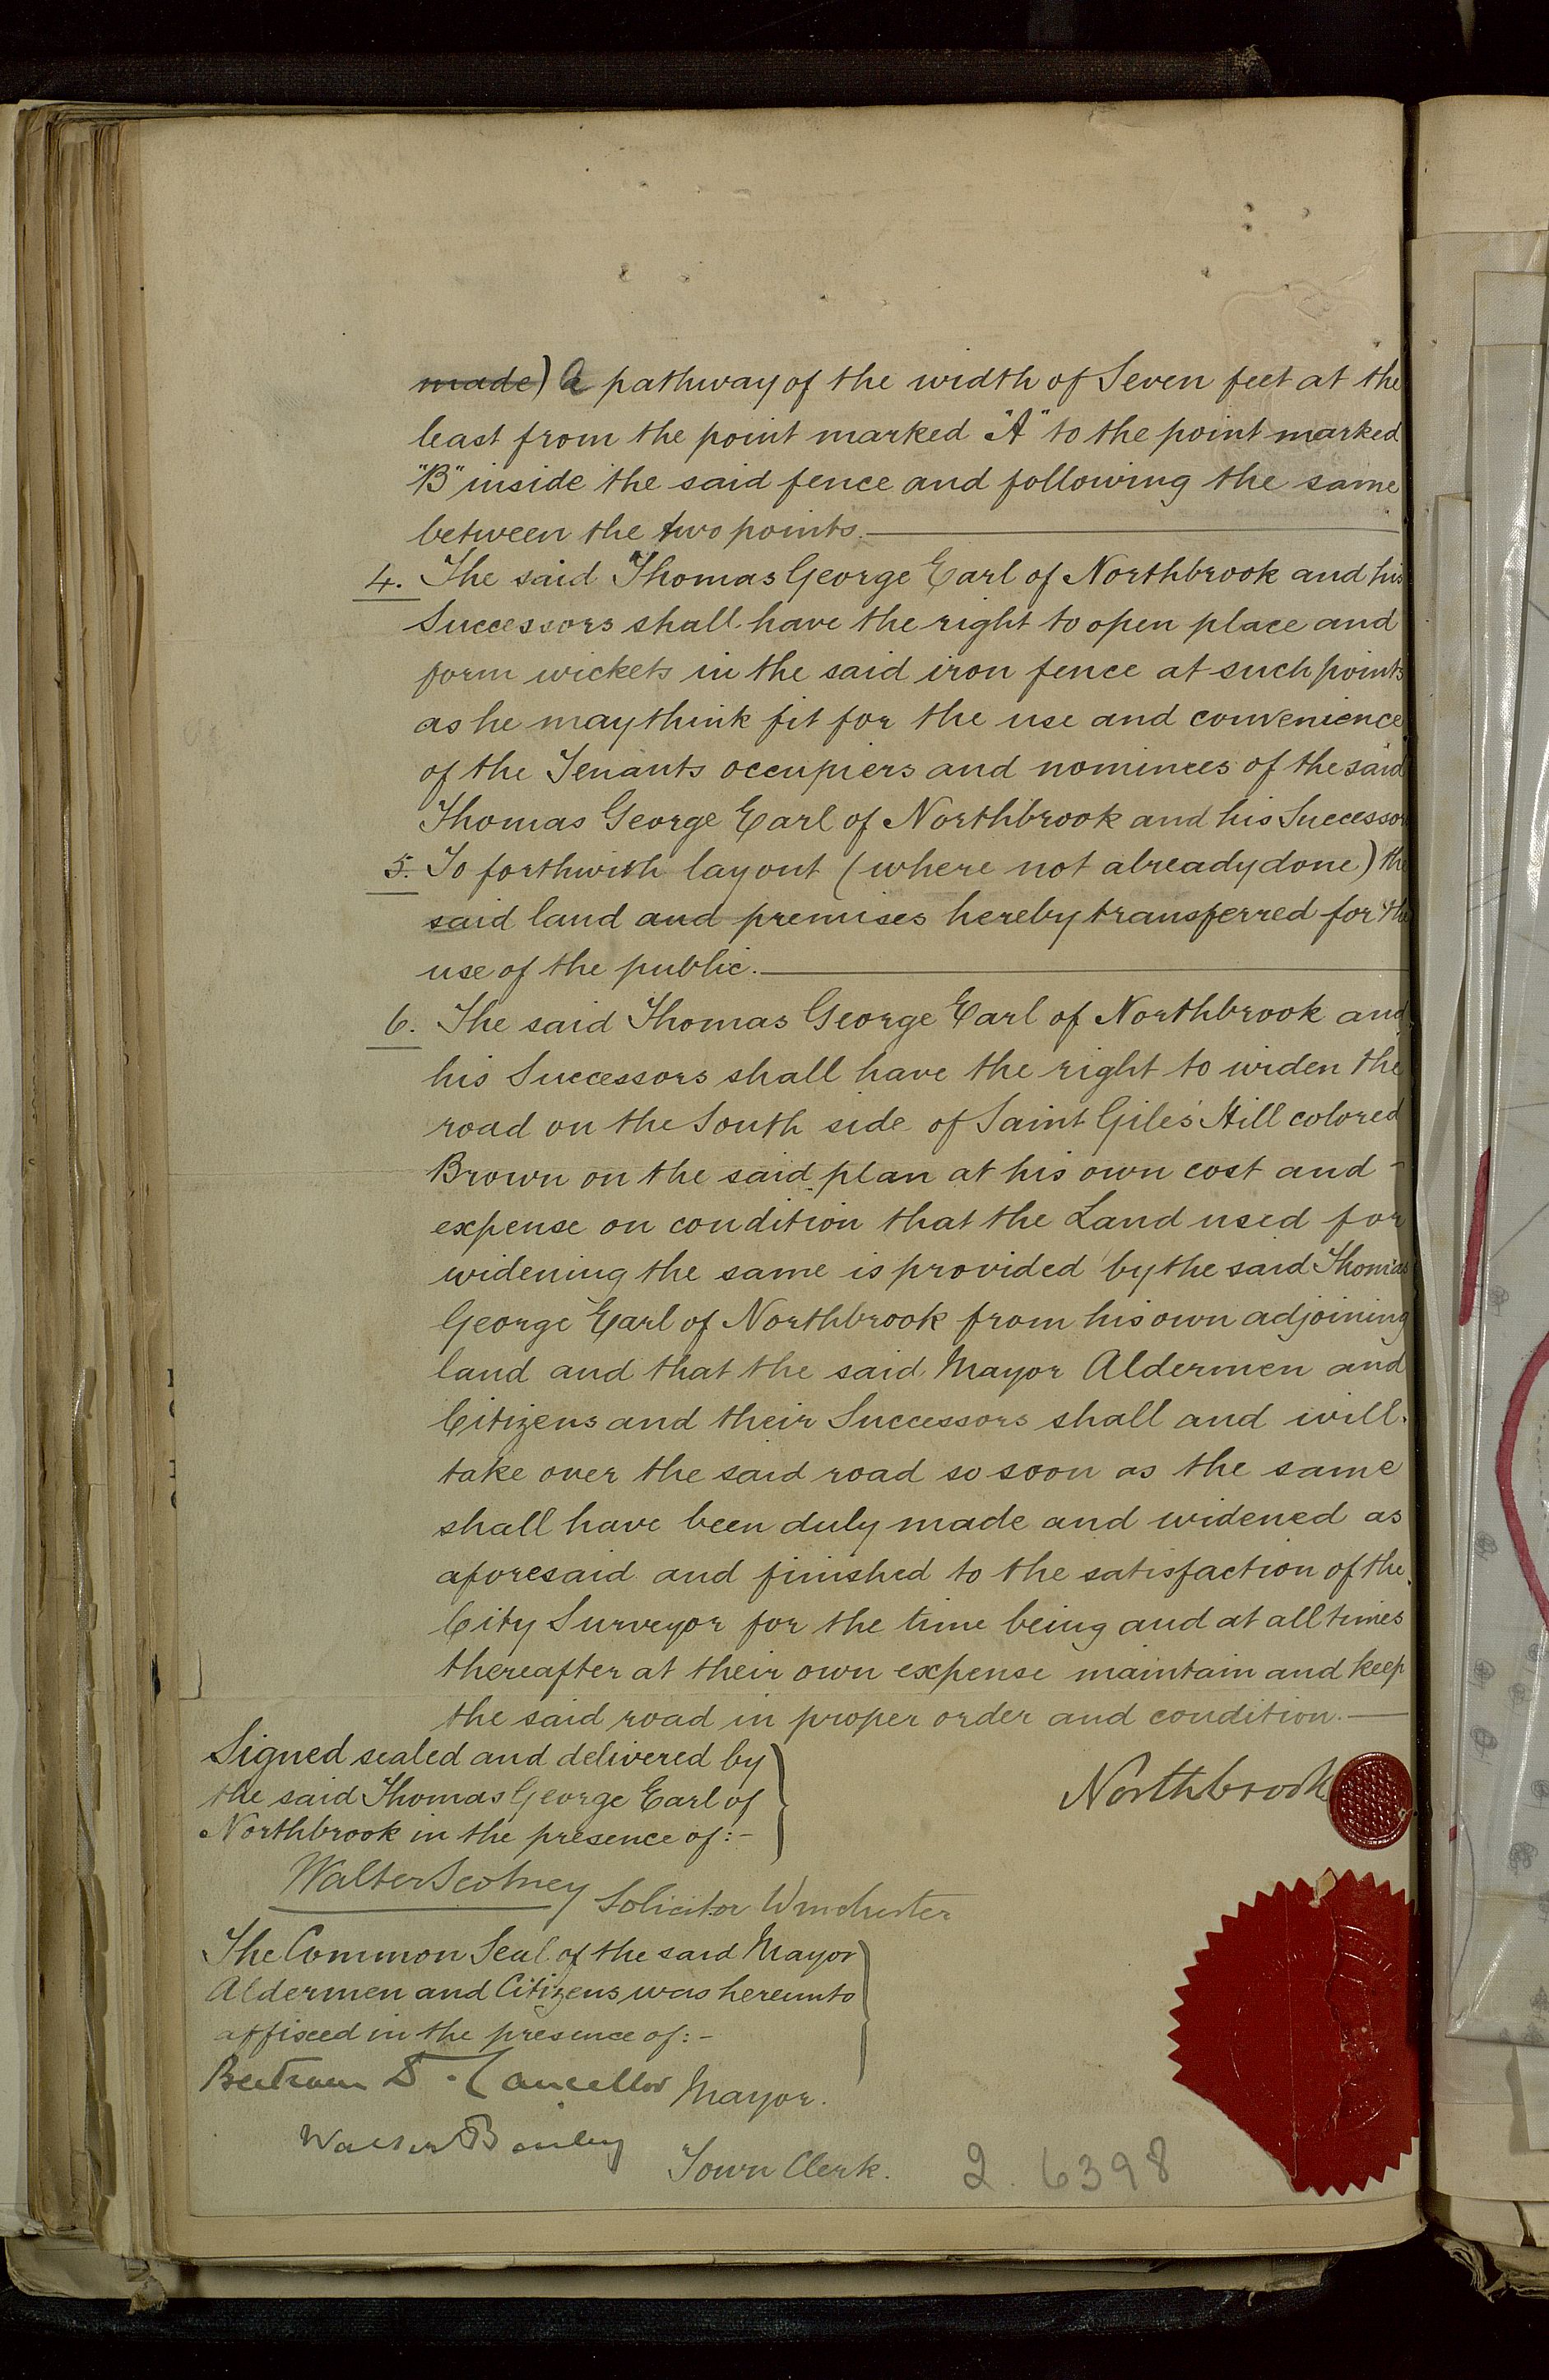 made) a pathway of the width of Seven feet at the
least from the point marked "A" to the point marked
"B" inside the said fence and following the same
between the two points.
4. The said Thomas George Earl of Northbrook and his
Successors shall have the right to open place and
form wickets in the said iron fence at such points
as he may think fit for the use and convenience
of the Tenants occupiers and nominees of the said
Thomas George Earl of Northbrook and his Successor
5. To forthwith layout (where not already done) the
said land and premises hereby transferred for the
use of the public.
6. The said Thomas George Earl of Northbrook and
his Successors shall have the right to widen the
road on the South side of Saint Giles' Hill colored
Brown on the said plan at his own cost and -
expense on condition that the Land used for
widening the same is provided by the said Thomas
George Earl of Northbrook from his own adjoining
land and that the said Mayor Aldermen and
Citizens and their Successors shall and will
take over the said road so soon as the same
shall have been duly made and widened as
aforesaid and finished to the satisfaction of the
City Surveyor for the time being and at all times
thereafter at their own expense maintain and keep
the said road in proper order and condition.
Signed sealed and delivered by
the said Thomas George Earl of
Northbrook in the presence of:-
Northbrook
Walter Scotney Solicitor Winchester
The Common Seal of the said Mayor
Aldermen and Citizens was hereunto
affixed in the presence of:-
Bertram D. Cancellor Mayor.
Walter Bailey
Town Clerk.
2. 6398